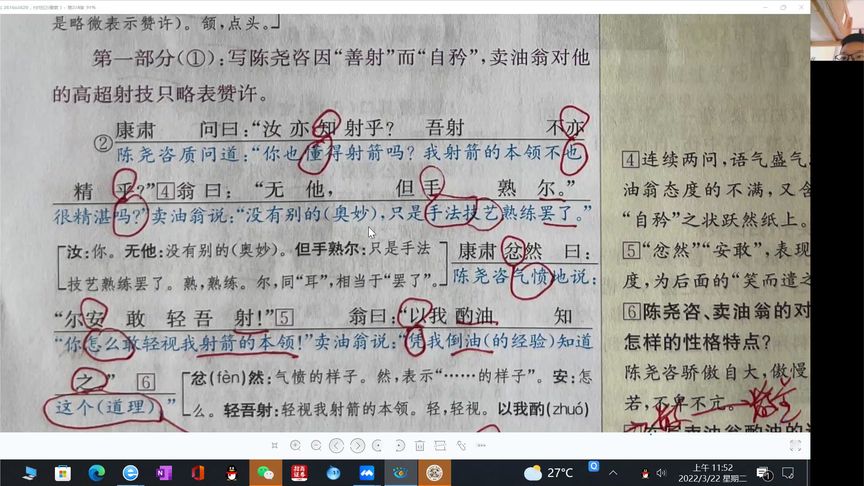 是略微表示赞许)。颔,点头。
第一部分(①):写陈尧咨因“善射”而“自矜”,卖油翁对他
的高超射技只略表赞许。
②康肃 问曰:“汝 亦 知 射乎? 吾射 不亦
陈尧咨质问道:“你也懂得射箭吗?我射箭的本领不也
精 乎?”④翁 曰: “无 他, 但 手 熟 尔。”
很精湛吗?”卖油翁说:“没有别的(奥妙),只是手法技艺熟练罢了。”
汝:你。无他:没有别的(奥妙)。但手熟尔:只是手法
技艺熟练罢了。熟,熟练。尔,同“耳”,相当于“罢了”。
康肃 忿然 曰:
陈尧咨气愤地说:
“尔安 敢 轻 吾 射!”⑤ 翁曰:“以我 酌油 知
“你怎么敢轻视我射箭的本领!”卖油翁说:“凭我倒油(的经验)知道
之” ⑥
这个(道理)”
忿(fèn)然:气愤的样子。然,表示“……的样子”。安:怎
么。轻吾射:轻视我射箭的本领。轻,轻视。以我酌(zhuó)
④连续两问,语气盛气
油翁态度的不满,又含
“自矜”之状跃然纸上。
⑤“忿然”“安敢”,表现
度,为后面的“笑而遣之
⑥陈尧咨、卖油翁的对
怎样的性格特点?
陈尧咨骄傲自大,傲慢
若,不卑不亢。
27°C
上午 11:52
2022/3/22 星期二